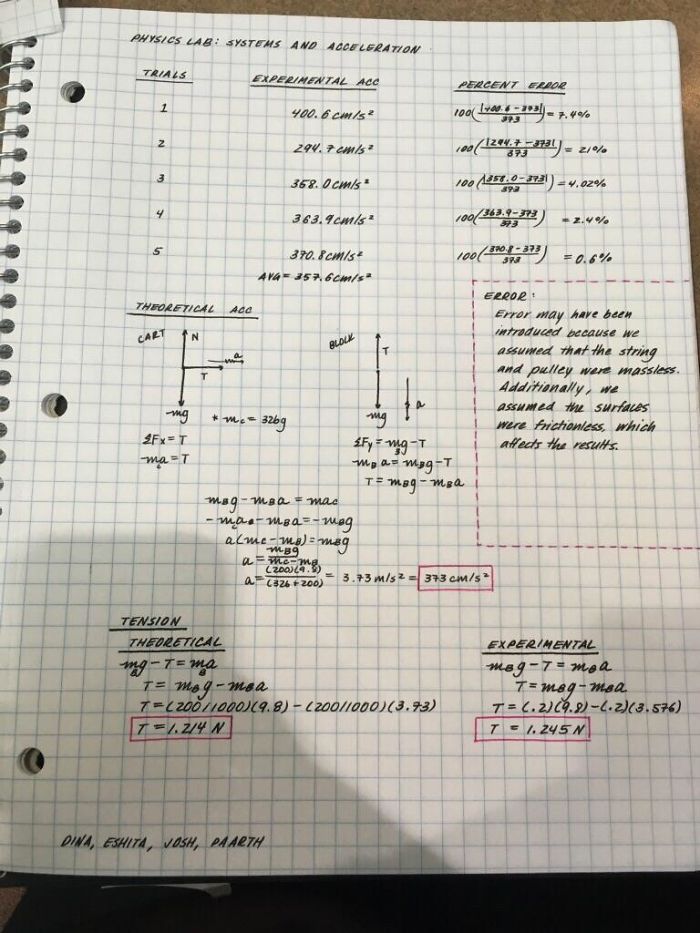 PHYSICS LAB: SYSTEMS AND ACCELERATION
TRIALS EXPERIMENTAL ACC PERCENT ERROR
1 400.6 cm/s² 100(|400.6-373|/373) = 7.4%
2 294.7 cm/s² 100(|294.7-373|/373) = 21%
3 358.0 cm/s² 100(|358.0-373|/373) = 4.02%
4 363.9 cm/s² 100(363.9-373/373) = 2.4%
5 370.8 cm/s² 100(370.8-373/373) = 0.6%
AVG = 357.6 cm/s²
THEORETICAL ACC
CART N a T mg
* mc = 326g
ΣFx = T
mca = T
BLOCK T a mg
ΣFy = mBg - T
mBa = mBg - T
T = mBg - mBa
ERROR:
Error may have been
introduced because we
assumed that the string
and pulley were massless.
Additionally, we
assumed the surfaces
were frictionless, which
affects the results.
mBg - mBa = mac
- mca - mBa = - mBg
a(mc - mB) = mBg
a = mBg/mc-mB
a = (200)(9.8)/(326+200) = 3.73 m/s² = 373 cm/s²
TENSION
THEORETICAL
mBg - T = mBa
T = mBg - mBa
T = (200/1000)(9.8) - (200/1000)(3.73)
T = 1.214 N
EXPERIMENTAL
mBg - T = mBa
T = mBg - mBa
T = (.2)(9.8) - (.2)(3.576)
T = 1.245 N
DINA, ESHITA, JOSH, PAARTH